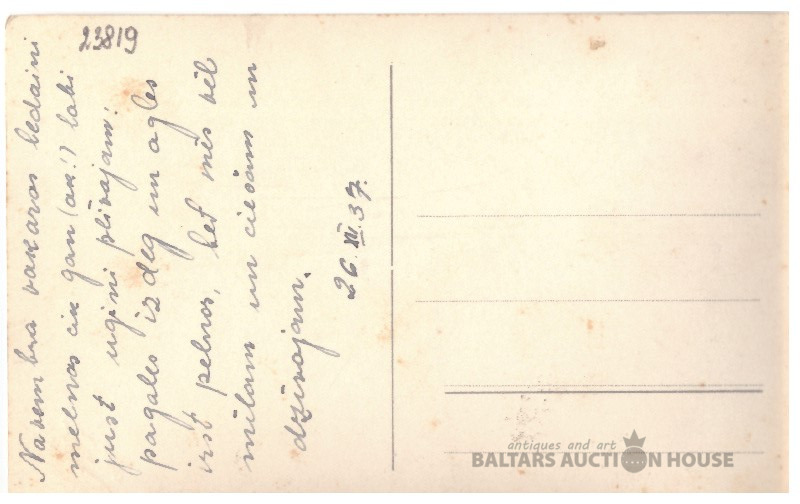 23819
Novembra vakaros ledaini
melnos cik gan (ak!) labi
just uguni plivojam:
pagales izdeg un ogles
irst pelnos, bet mēs vēl
mīlam un ciešam un
dzīvojam.
26. XI. 37.
antiques and art
BALTARS AUCTION HOUSE